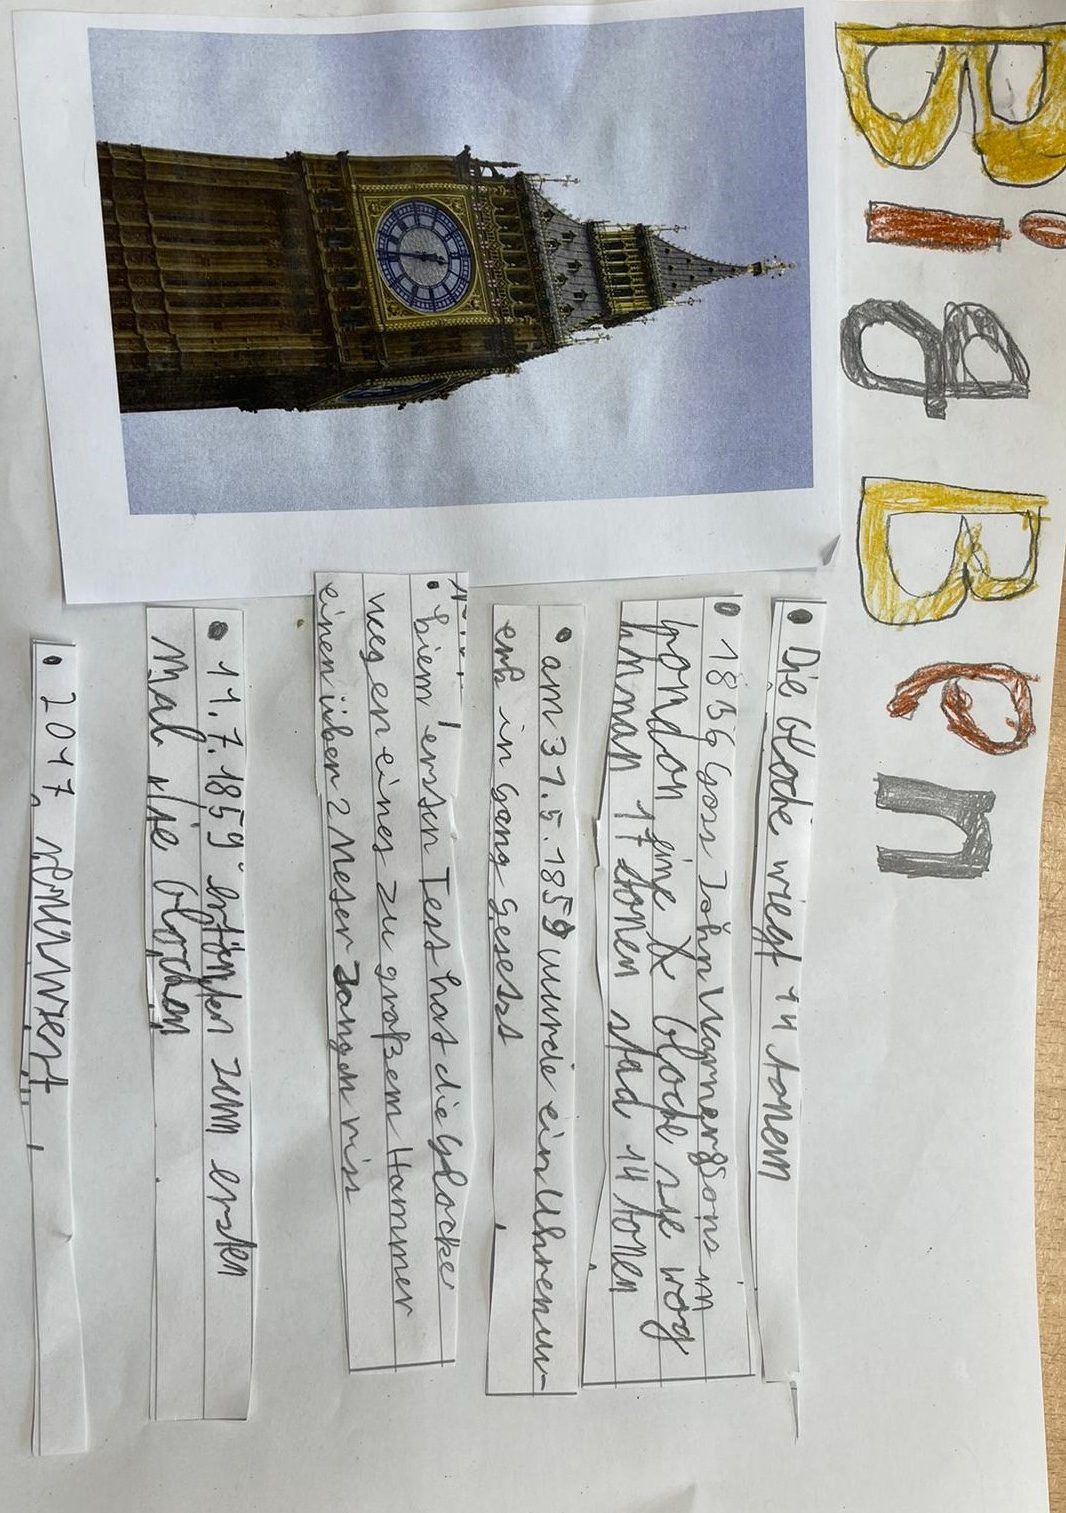 BiG Ben
• Die Glocke wiegt 14 tonen
• 1856 Goss John Warner&Sons in
London eine X Glocke sie wog
17 tonen stad 14 tonen
• am 31.5.1859 wurde ein Uhrenw-
erk in gang gesetzt
• biem ersten Test hat die Glocke
wegen eines zu großem Hammer
einen über 2 Meter langen riss
• 11.7.1859 ertönten zum ersten
Mal die Glocken
• 2017